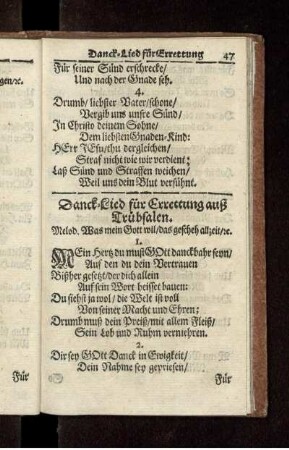 gen/ꝛc.
Für
Danck-Lied für Errettung 47
Für seiner Sünd erschrecke/
Und nach der Gnade seh.
4.
Drumb/ liebster Vater/schone/
Vergib uns unsre Sünd/
In Christo deinem Sohne/
Dem liebsten Gnaden-Kind:
HErr JEsu/thu dergleichen/
Straf nicht wie wir verdient;
Laß Sünd und Straffen weichen/
Weil uns dein Blut versühnt.
Danck-Lied für Errettung auß
Trübsalen.
Melod. Was mein Gott wil/das gescheh allzeit/ꝛc.
1.
MEin Hertz du must GOtt danckbahr seyn/
Auf den du dein Vertrauen
Bißher gesetzt/der dich allein
Auf sein Wort heisset bauen:
Du siehst ja wol/ die Welt ist voll
Von seiner Macht und Ehren;
Drumb must dein Preiß/mit allem Fleiß/
Sein Lob und Ruhm vermehren.
2.
Dir sey GOtt Danck in Ewigkeit/
Dein Nahme sey gepriesen/
Für